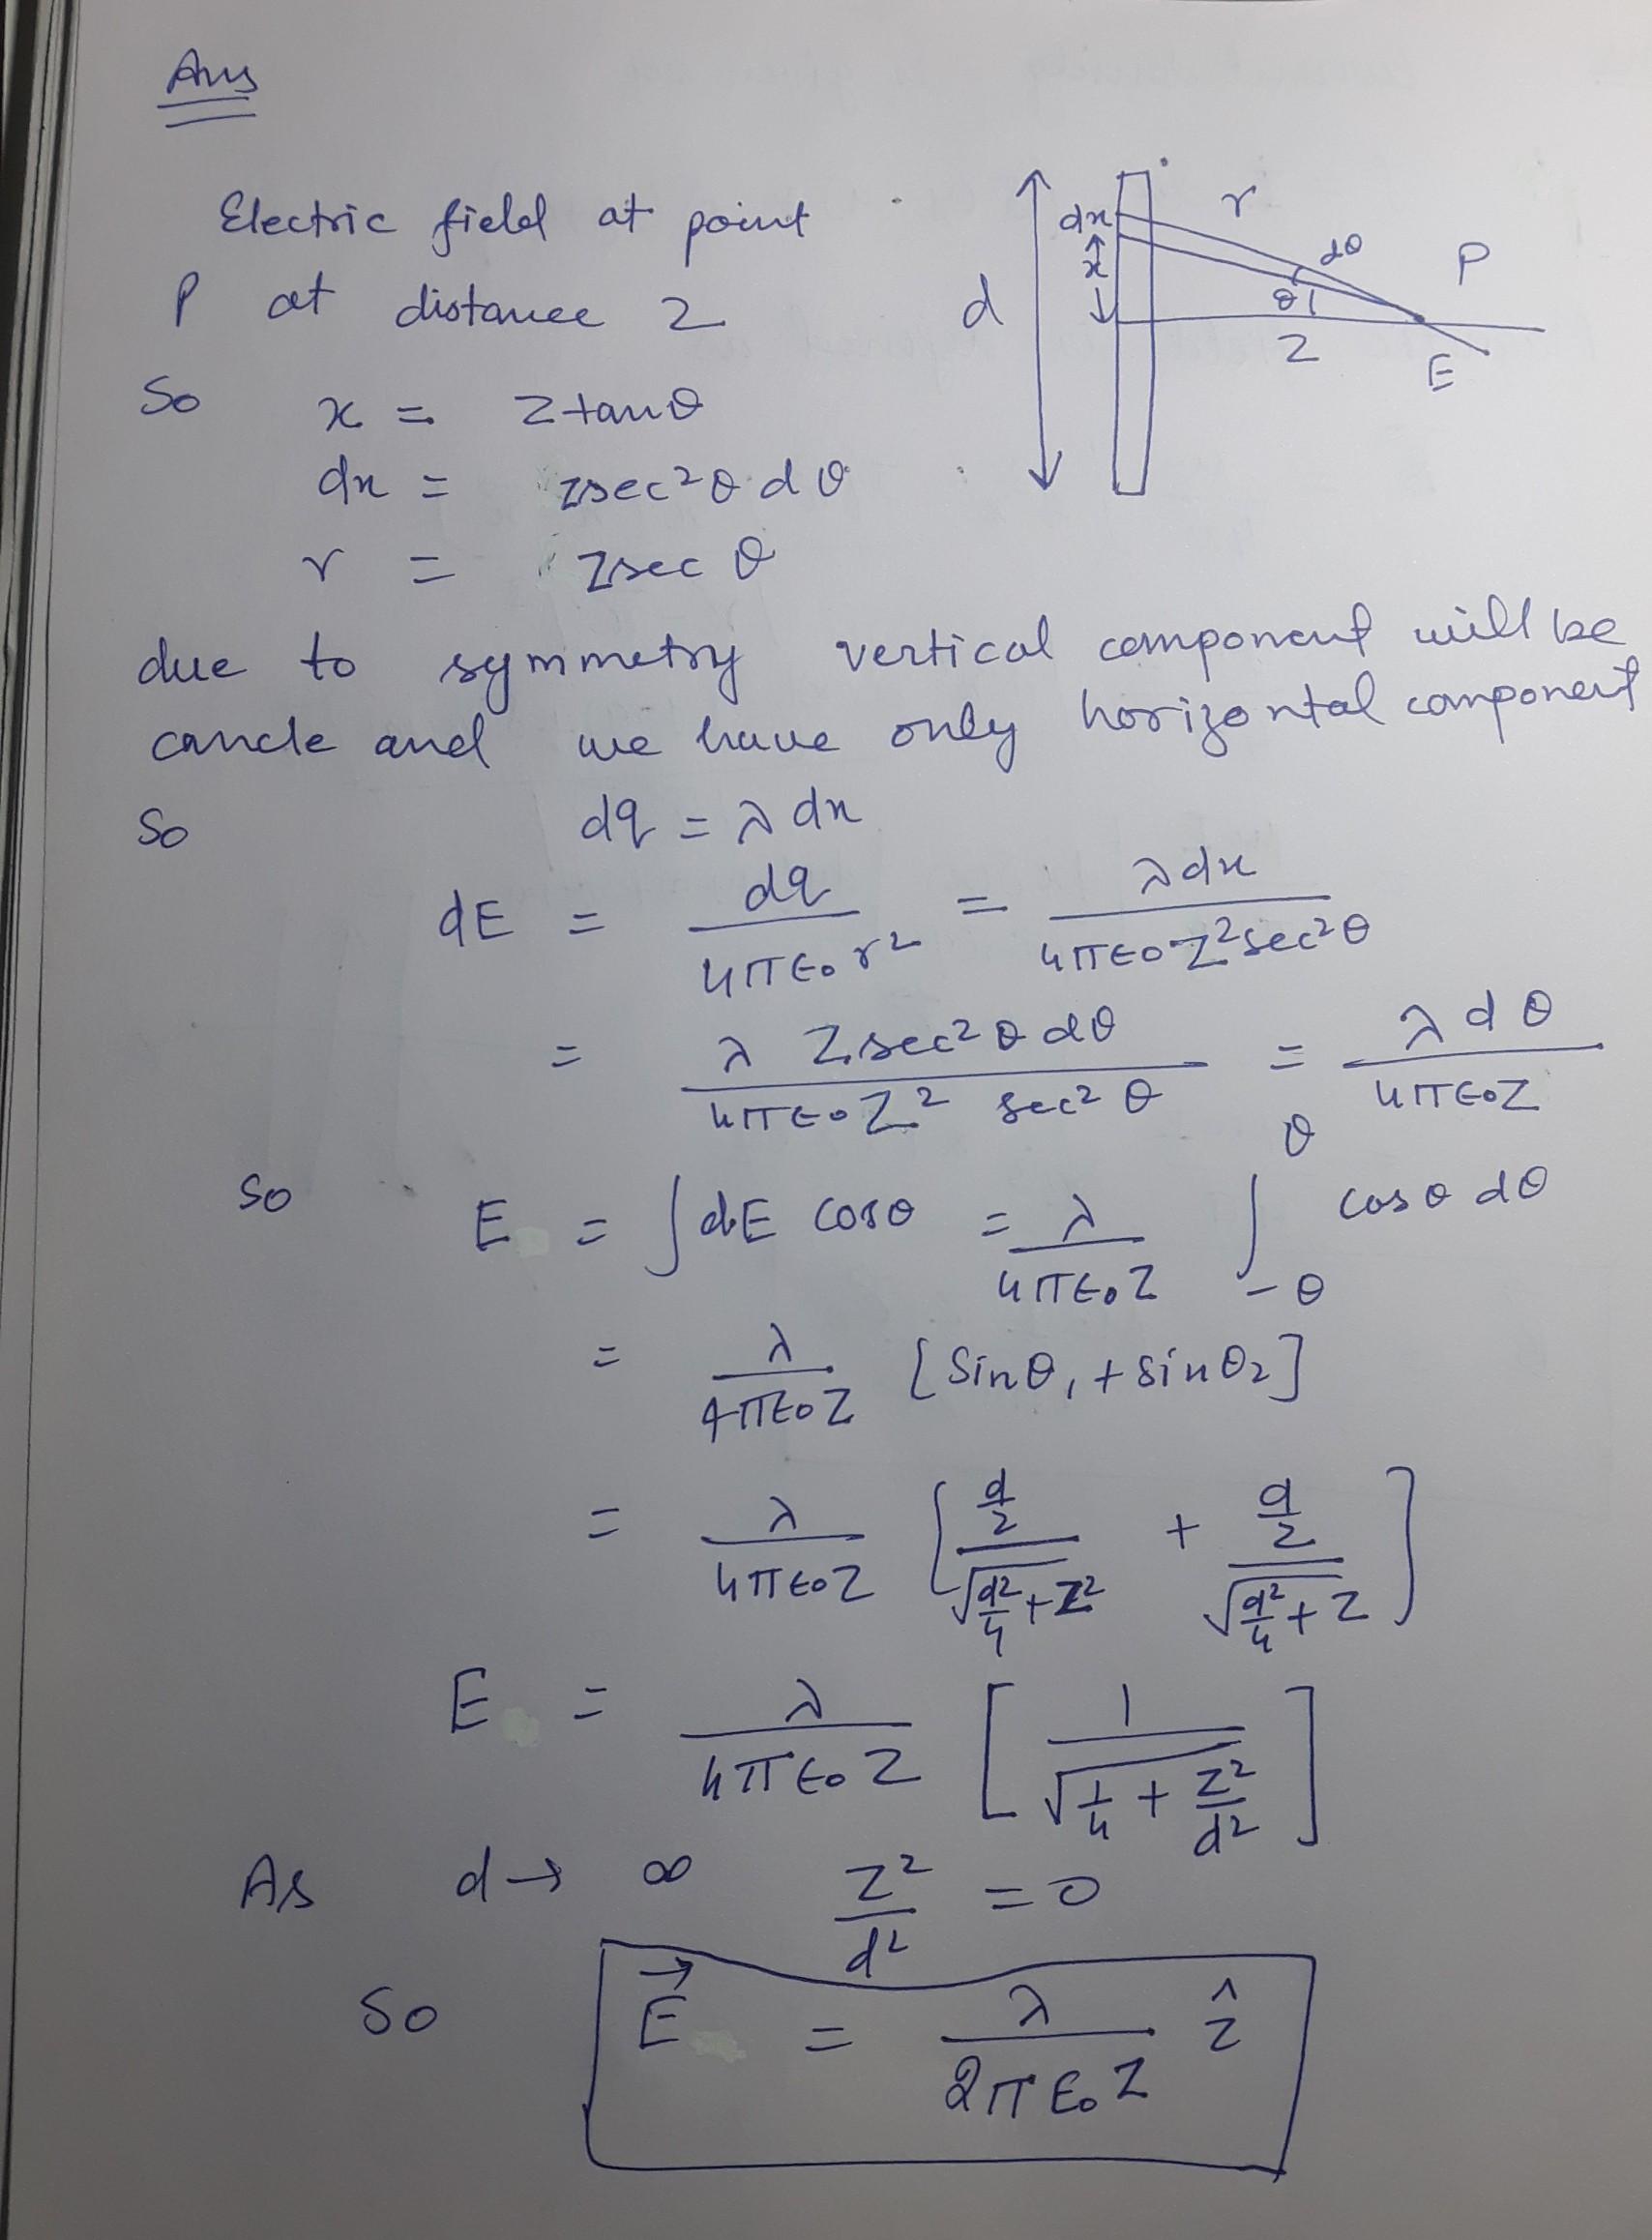 Ans
Electric field at point
P at distance z
dx
x
d
r
dθ
θ
P
z
E
So x = z tanθ
dx = z sec²θ dθ
r = z sec θ
due to symmetry vertical component will be
cancle and we have only horizontal component
So dq = λ dx
dE = dq / 4πε₀ r² = λ dx / 4πε₀ z² sec²θ
= λ z sec²θ dθ / 4πε₀ z² sec²θ = λ dθ / 4πε₀ z
So E = ∫ dE cosθ = λ / 4πε₀ z ∫_{-θ}^{θ} cosθ dθ
= λ / 4πε₀ z [Sinθ₁ + sinθ₂]
= λ / 4πε₀ z [ (d/2) / √(d²/4 + z²) + (d/2) / √(d²/4 + z) ]
E = λ / 4πε₀ z [ 1 / √(1/4 + z²/d²) ]
As d → ∞ z²/d² = 0
So E⃗ = λ / 2πε₀ z ẑ